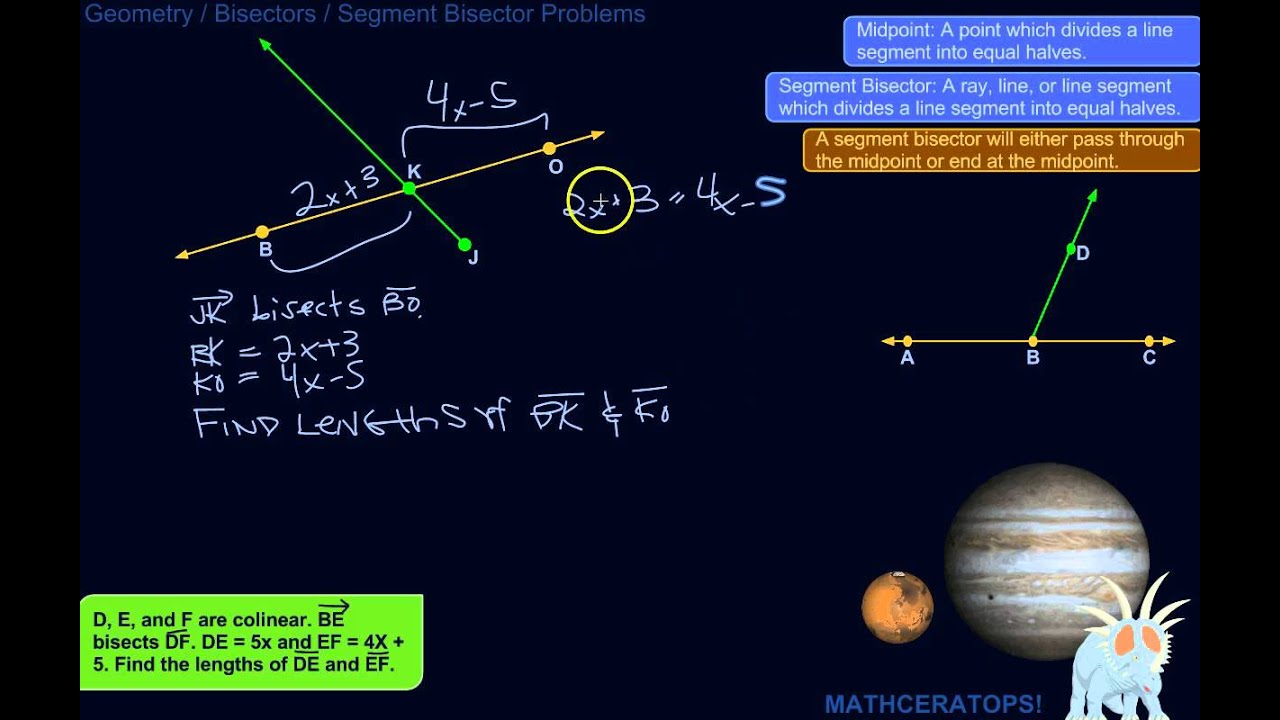 Geometry / Bisectors / Segment Bisector Problems
Midpoint: A point which divides a line
segment into equal halves.
Segment Bisector: A ray, line, or line segment
which divides a line segment into equal halves.
A segment bisector will either pass through
the midpoint or end at the midpoint.
4x-5
2x+3
K
O
B
J
2x+3=4x-5
D
A
B
C
JK bisects BO.
BK = 2x+3
KO = 4x-5
FIND LENGTHS of BK & KO
D, E, and F are colinear. BE
bisects DF. DE = 5x and EF = 4X +
5. Find the lengths of DE and EF.
MATHCERATOPS!